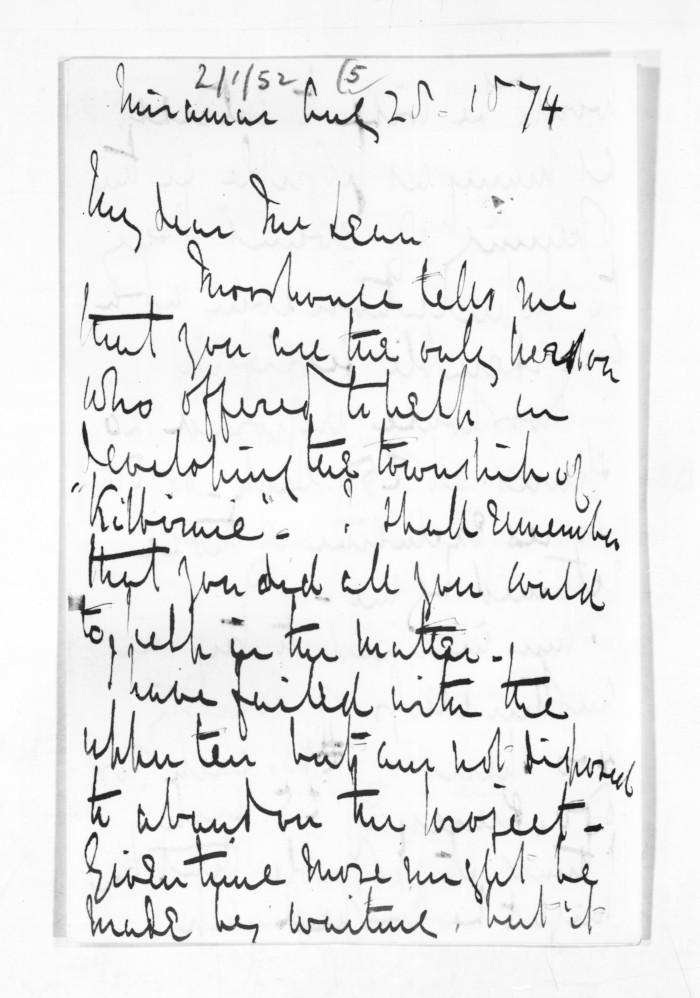 2/1/52 (5
Miramar Aug 28 - 1874
My dear McLean
Moorhouse tells me
that you are the only person
who offered to help in
developing the township of
"Kilbirnie" - I shall remember
that you did all you could
to help in the matter -
I have failed with the
upper ten but am not disposed
to abandon the project -
Given time more might be
made by waiting, but it